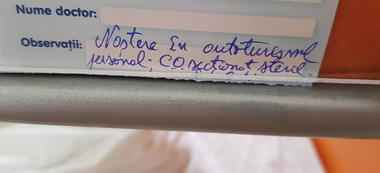 Nume doctor:
Observații: Naștere în autoturismul
personal; C.O. secționat steril.